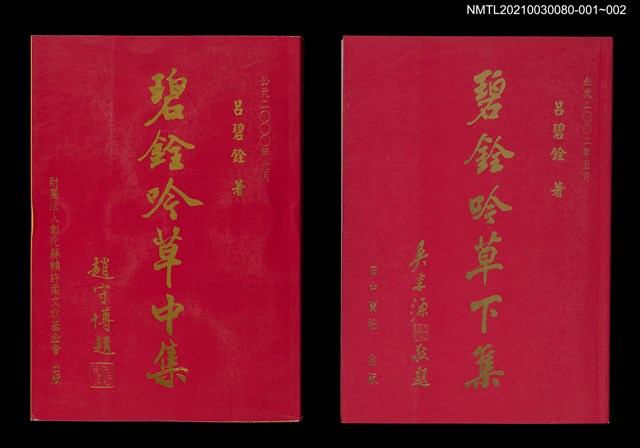 NMTL20210030080-001~002
公元二〇〇〇年一月
呂碧銓 著
碧銓吟草中集
趙守博題
財團法人彰化縣賴許柔文教基金會 出版
公元二〇〇二年五月
呂碧銓 著
碧銓吟草下集
敬題
出版